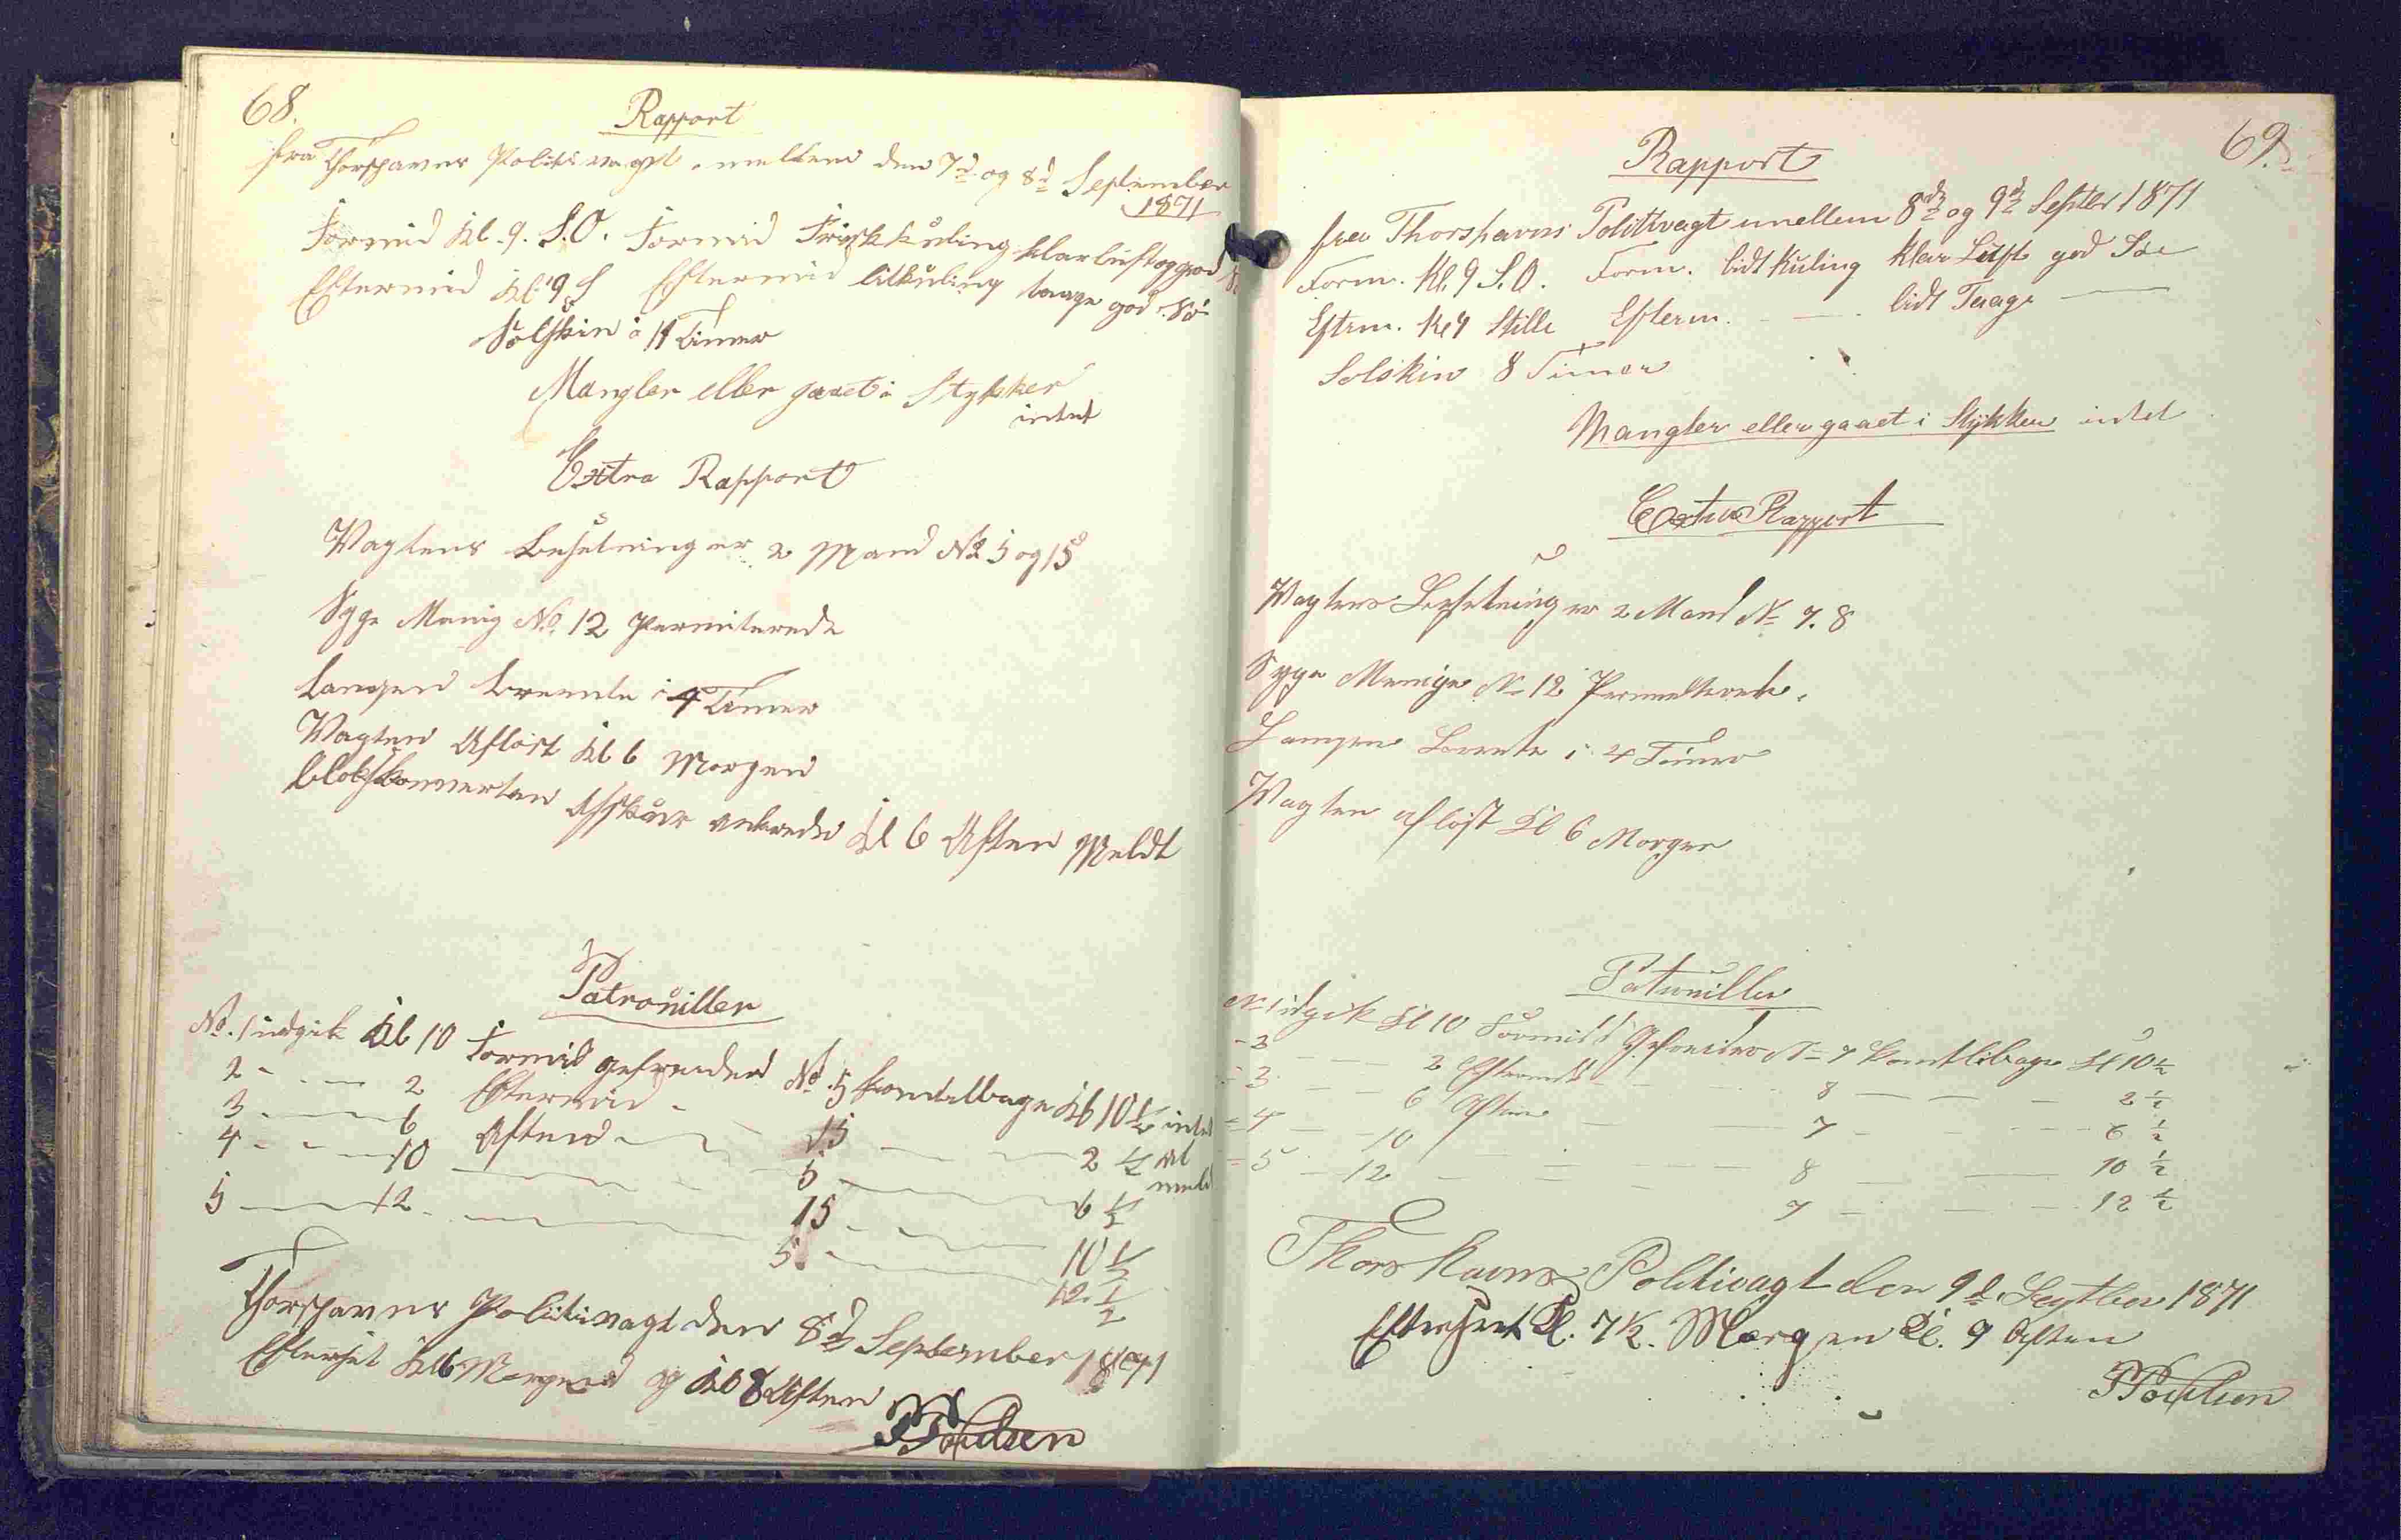 68.
Rapport
fra Thorshavns Politivagt. mellem den 7d og 8d September
1871
Formid Kl. 9. S.O. Formid Frisk kuling klar luft og god
Eftermid Kl. 9 S Eftermid litkuling taage god Sö
Solskin i 11 Timer
Mangler eller gaaet i Stykker
intet
Extra Rapport
Vagtens Besetning er 2 Mand No 5 og 15
Syge Menig No. 12 Permiterede
Langen brente i 4 Timer
Vagten Aflöst Kl 6 Morgen
ankrede Kl 6 Aften Meldt
Patrouiller
No. 1 udgik Kl 10 Formid gefreider No. 5 kom tilbage Kl 10 1/2 intet
2 - - - 2 Eftermid - 15 - - - 2 1/2 at
3 - - - 6 Aften - 5 - - - 6 1/2 meld
4 - - - 10 - - - 15 - - - 10 1/2
5 - - - 12 - - - 5 - - - 12 1/2
Thorshavns Politivagt den 8d September 1871
Efterset Kl 6 Morgen og Kl 8 Aften
Poulsen
69.
Rapport
fra Thorshavns Politivagt imellem 8de og 9de Septbr 1871
Form. Kl. 9 S.O. Form. lidt Kuling klar Luft god Sö
Eftrm. Kl 9 Stille Efterm. - - lidt Taage -
Solskin 8 Timer
Mangler eller gaaet i Stykker intet
Extra Rapport
Vagtens Besetning er 2 Mand No 7. 8
Syge Menige No 12 Permiterede.
Langen brente i 4 Timer
Vagten aflöst Kl 6 Morgen
Patrouiller
No 1 udgik Kl 10 Formidd Gefreider No 7 kom tilbage Kl 10 1/2
- 2 - - 2 Eftermidd - - 8 - - - 2 1/2
- 3 - - 6 Aften - - 7 - - - 6 1/2
- 4 - - 10 - - - 8 - - 10 1/2
- 5 - - 12 - - - 7 - - - 12 1/2
Thorshavns Politivagt den 9d. Septber 1871
Efterset Kl. 7 1/2. Morgen Kl. 9 Aften
Poulsen